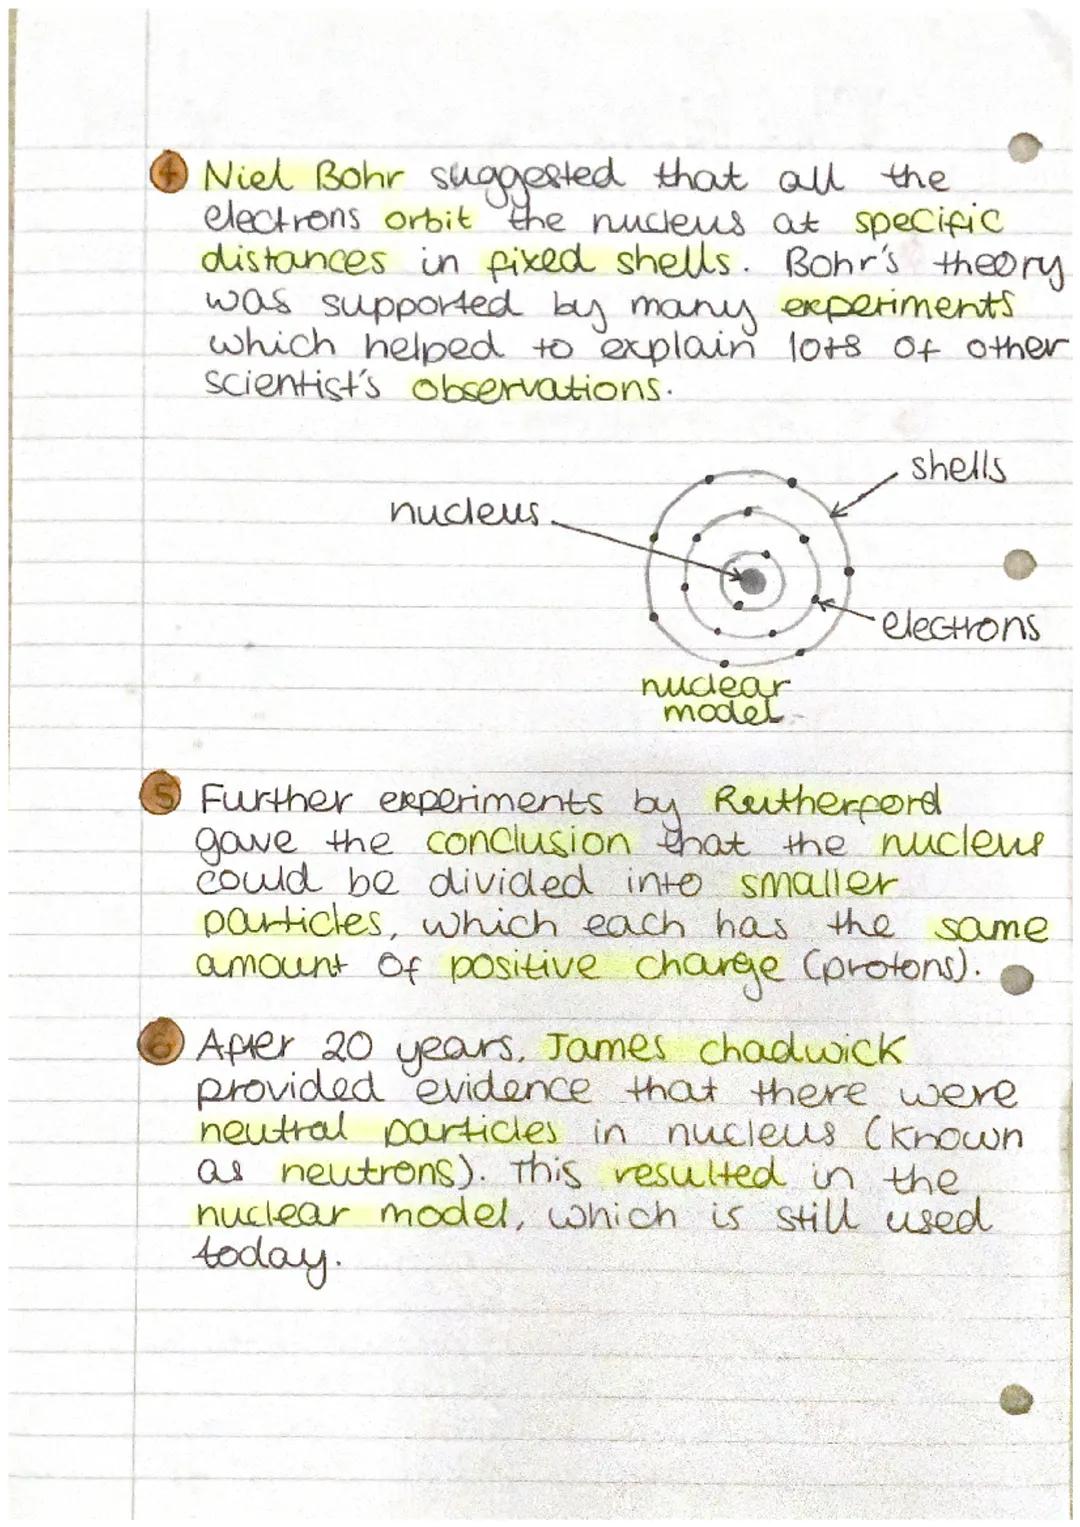 4 Niel Bohr suggested that all the
electrons orbit the nucleus at specific
distances in fixed shells. Bohr's theory
was supported by many experiments
which helped to explain lots of other
scientist's observations.
shells
nucleus
electrons
nuclear
model
5 Further experiments by Rutherford
gave the conclusion that the nucleus
could be divided into smaller
particles, which each has the same
amount of positive charge (protons).
6 After 20 years, James chadwick
provided evidence that there were
neutral particles in nucleus (known
as neutrons). This resulted in the
nuclear model, which is still used
today.